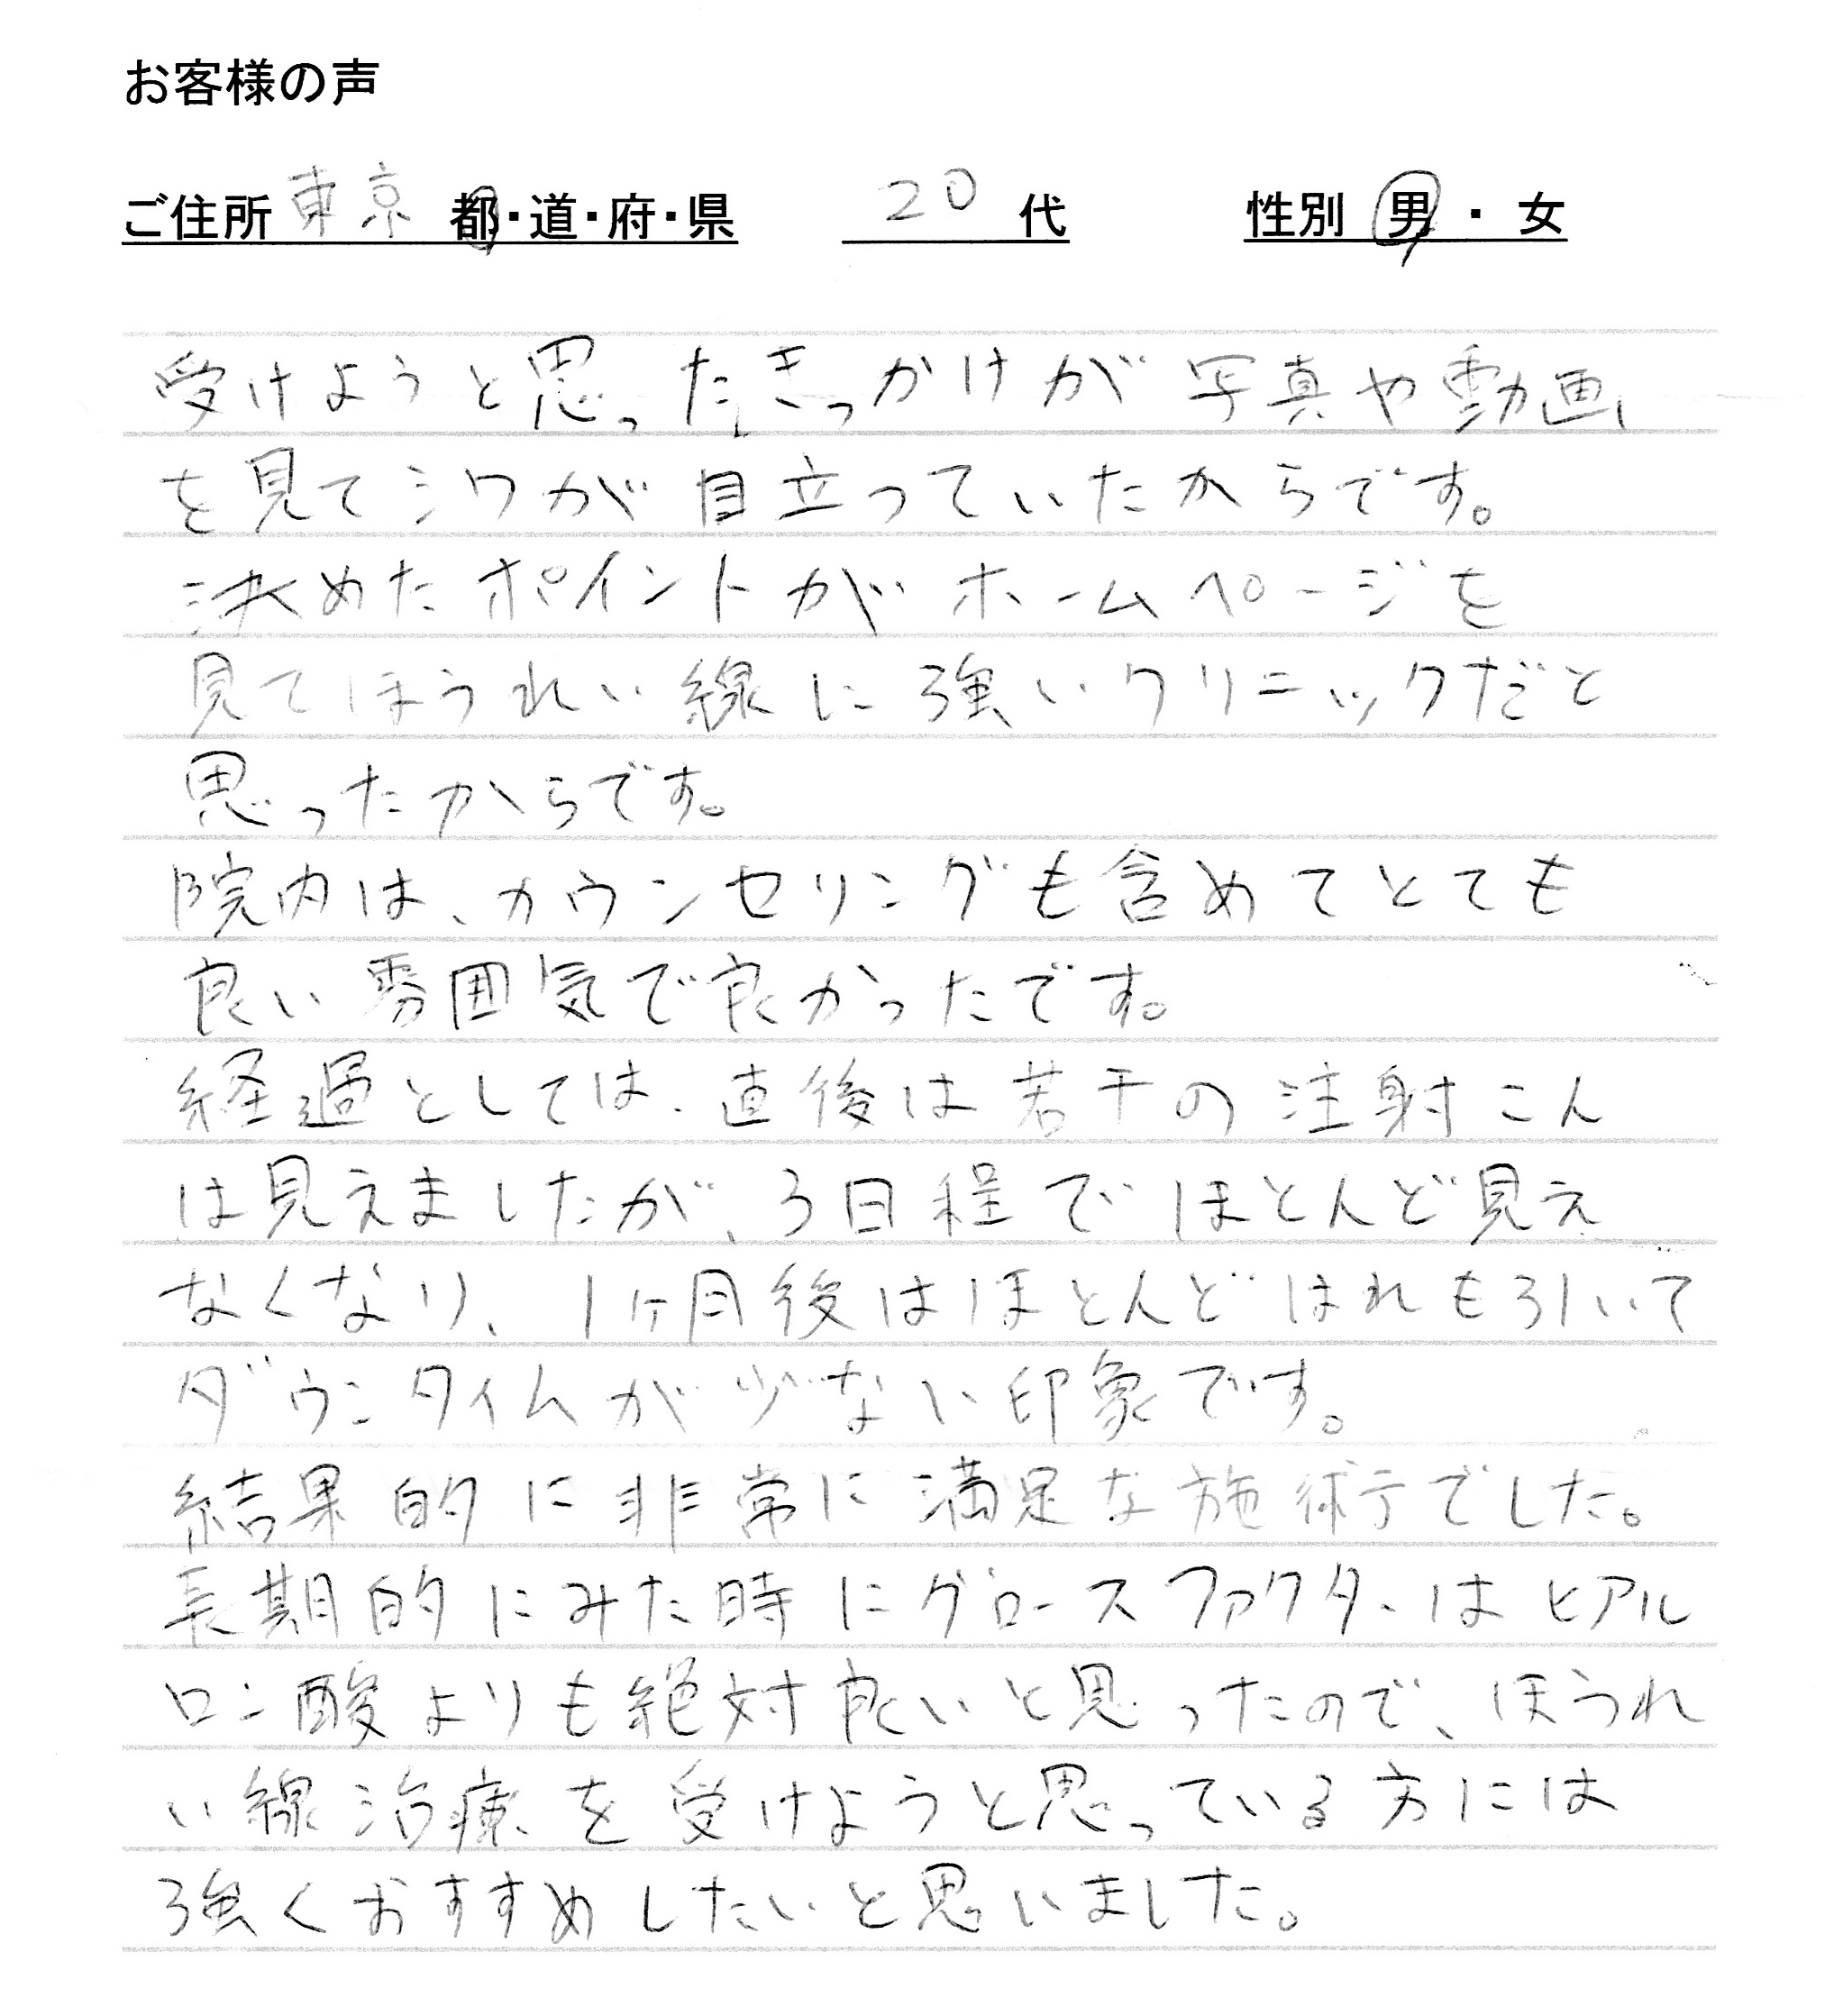 お客様の声
ご住所 東京 都・道・府・県 20 代 性別 男・女
受けようと思ったきっかけが写真や動画
を見てシワが目立っていたからです。
決めたポイントがホームページを
見てほうれい線に強いクリニックだと
思ったからです。
院内は、カウンセリングも含めてとても
良い雰囲気で良かったです。
経過としては、直後は若干の注射こん
は見えましたが、3日程でほとんど見え
なくなり、1ヶ月後はほとんどはれも引いて
ダウンタイムが少ない印象です。
結果的に非常に満足な施術でした。
長期的にみた時にグロースファクターはヒアル
ロン酸よりも絶対良いと思ったので、ほうれ
い線治療を受けようと思っている方には
強くおすすめしたいと思いました。